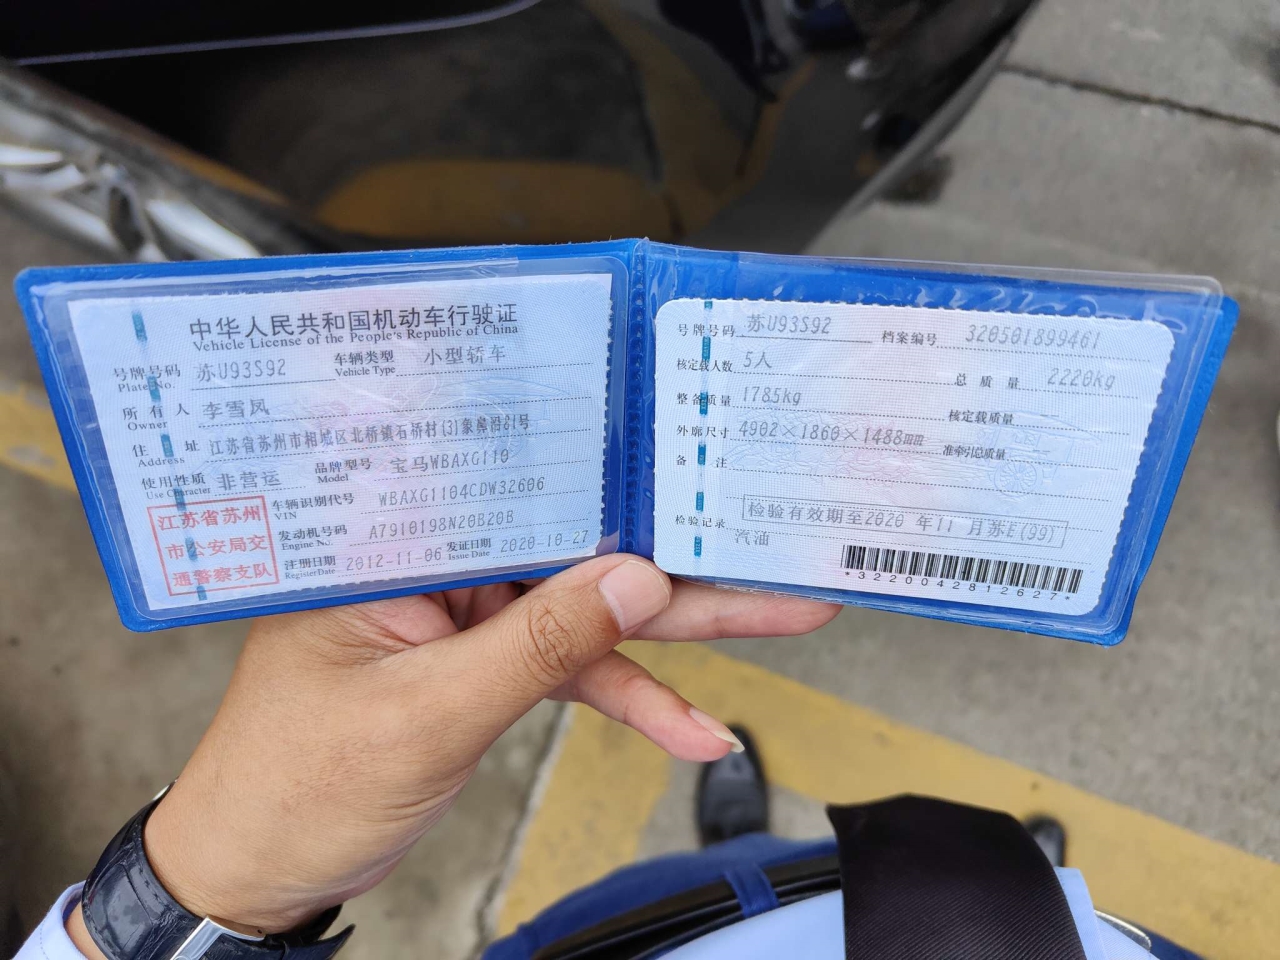 中华人民共和国机动车行驶证
Vehicle License of the People's Republic of China
号牌号码 苏U93S92 车辆类型 小型轿车
Plate No. Vehicle Type
所有人 李雪凤
Owner
住址 江苏省苏州市相城区北桥镇石桥村(3)象
Address
使用性质 非营运 品牌型号 宝马WBAXG110
Use Character Model
江苏省苏州
市公安局交
通警察支队
车辆识别代号 WBAXG1104CDW32606
VIN
发动机号码 A7910198N20B20B
Engine No.
注册日期 2012-11-06 发证日期 2020-10-27
Register Date Issue Date
号牌号码 苏U93S92 档案编号 320501899461
核定载人数 5人 总质量 2220kg
整备质量 1785kg 核定载质量 --
外廓尺寸 4902×1860×1488mm 准牵引总质量 --
备注
检验记录 检验有效期至2020年11月苏E(99)
汽油
*3220042812627*